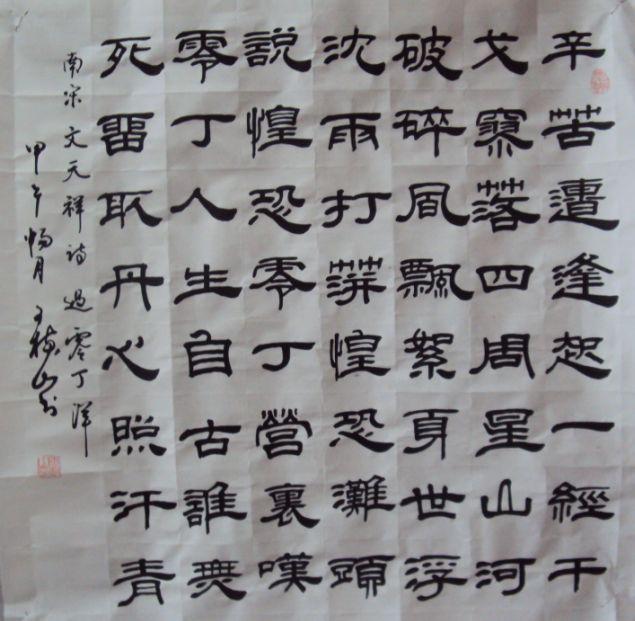 辛苦遭逢起一經干
戈寥落四周星山河
破碎風飄絮身世浮
沈雨打萍惶恐灘頭
說惶恐零丁營裏嘆
零丁人生自古誰無
死留取丹心照汗青
南宋文天祥詩過零丁洋
甲午暢月王山书